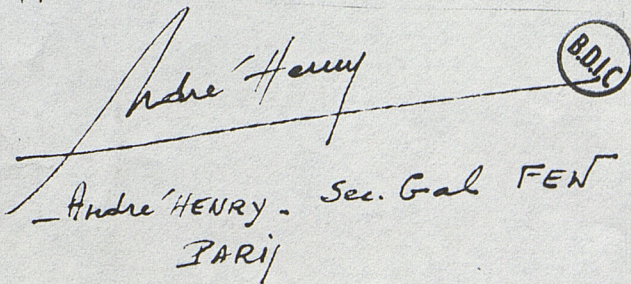 André Henry
B.D.I.C
- André HENRY - Sec. Gal FEN
PARIS